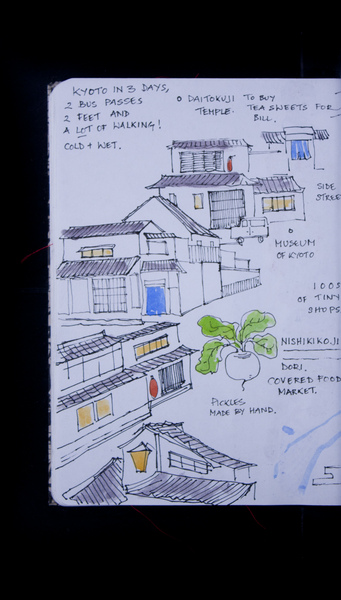 KYOTO IN 3 DAYS,
2 BUS PASSES
2 FEET AND
A LOT OF WALKING!
COLD + WET.
O DAITOKUJI TO BUY
TEMPLE. TEA SWEETS FOR
BILL.
SIDE
STREE
MUSEUM
OF KYOTO
100S
OF TINY
SHOPS
NISHIKIKOJI
DORI.
COVERED FOOD
MARKET.
PICKLES
MADE BY HAND.